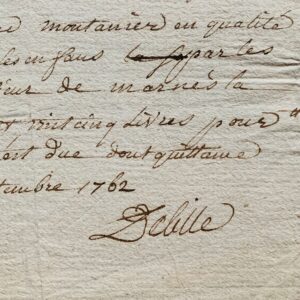 montanier en qualité
enfans par les
de marnés la
vint cinq Livres pour
est due dont quittance
tembre 1762
Debille